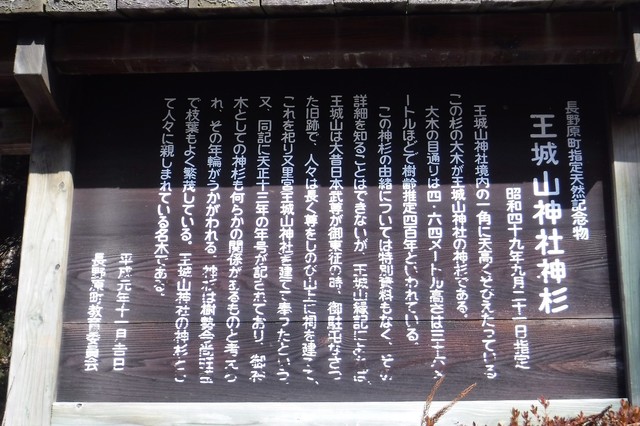 長野原町指定天然記念物
王城山神社神杉
昭和四十九年九月二十一日指定
王城山神社境内の一角に天高くそびえたっている
この杉の大木が王城山神社の神杉である。
大木の目通りは四・六四メートル高さは三十六メ
ートルほどで樹齢推定四百年といわれている。
この神杉の由緒については特別資料もなく、その
詳細を知ることはできないが、王城山縁記によれば、
王城山は大昔日本武尊が御東征の時、御駐屯なさっ
た旧跡で、人々は長く尊をしのび山上に祠を建て、
これを祀り又里宮王城山神社を建てて奉ったという。
又、同記に天正十三年の年号が記されており、御神
木としての神杉も何らかの関係があるものと考えら
れ、その年輪がうかがわれる。神杉は樹勢今尚旺盛
で枝葉もよく繁茂している。王城山神社の神杉とし
て人々に親しまれている名木である。
平成元年十一月吉日
長野原町教育委員会